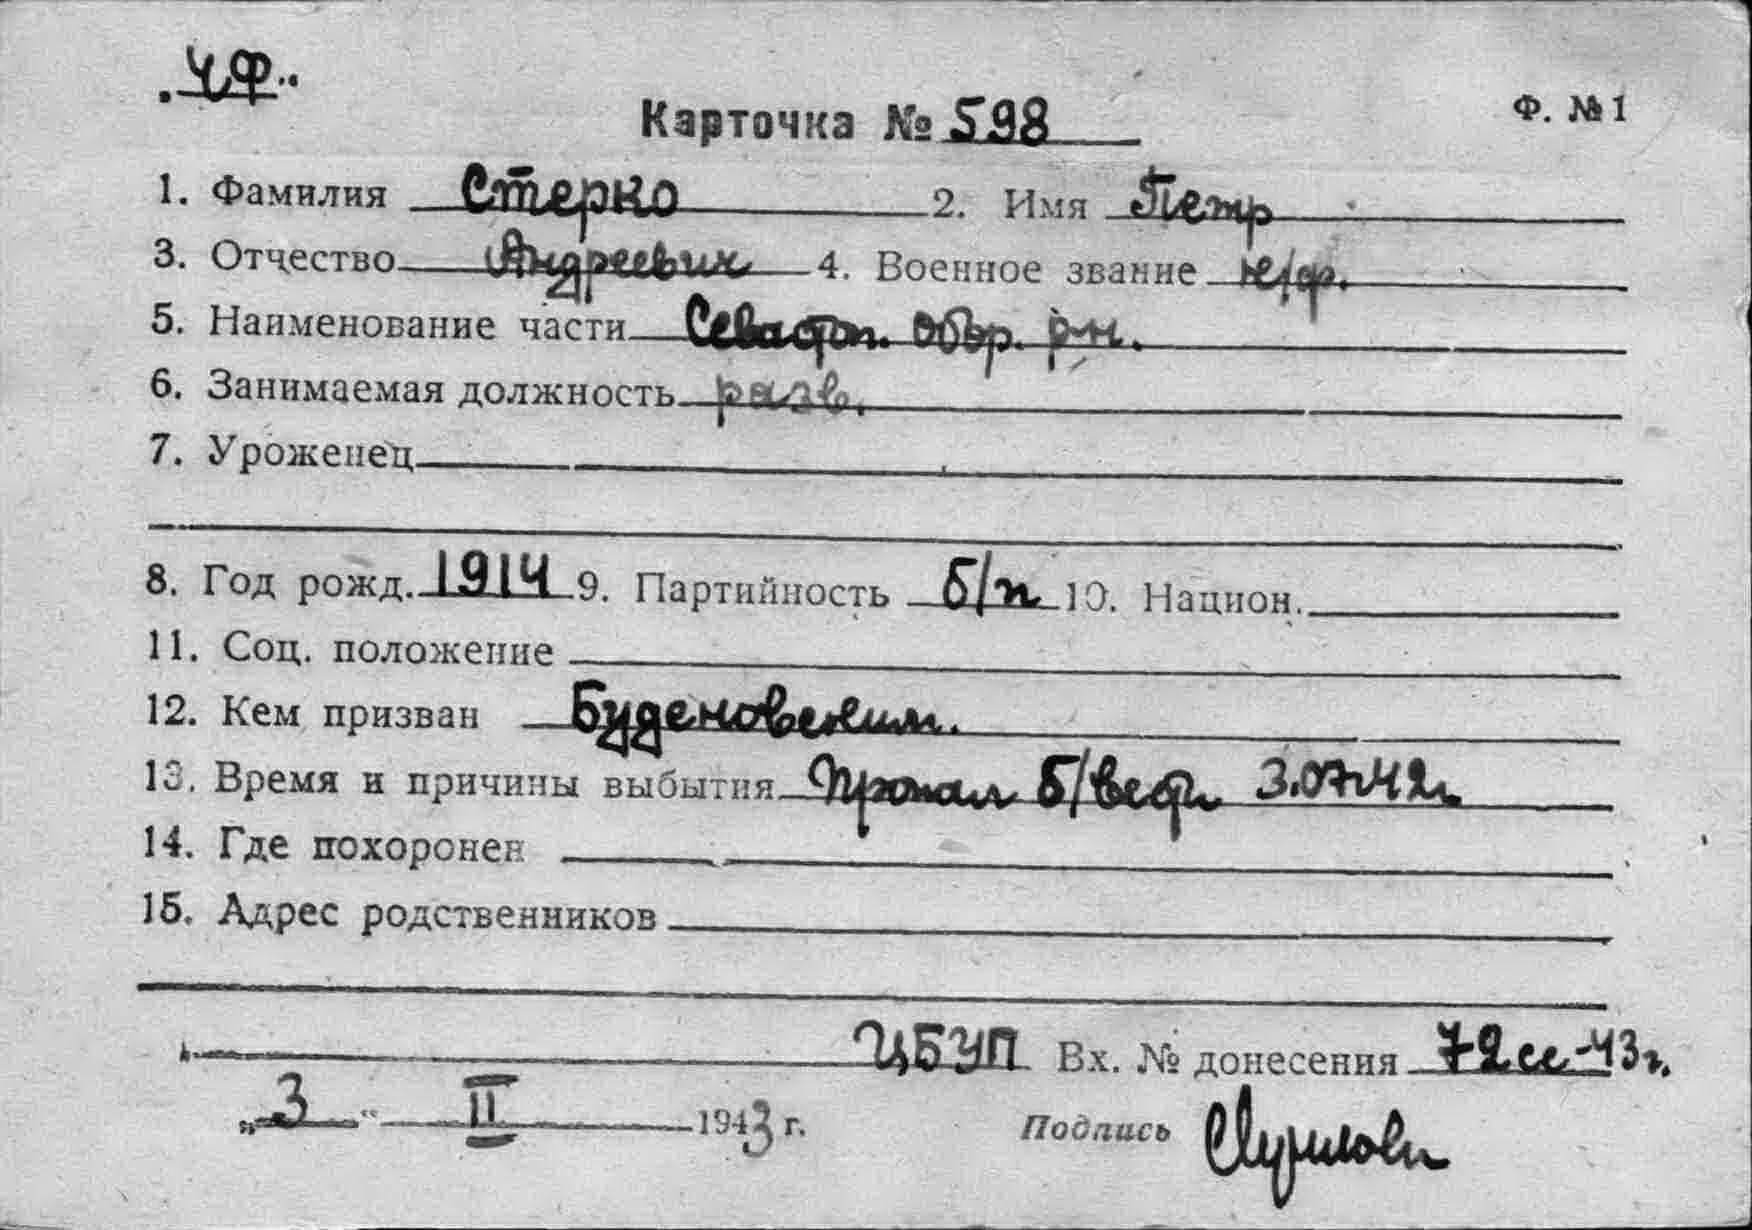 „ЧФ"
Карточка № 598
Ф. № 1
1. Фамилия Стерко 2. Имя Петр
3. Отчество Андреевич 4. Военное звание к/ф.
5. Наименование части Севастоп. обор. р-н.
6. Занимаемая должность разв.
7. Уроженец
8. Год рожд. 1914 9. Партийность б/п 10. Национ.
11. Соц. положение
12. Кем призван Буденовским.
13. Время и причины выбытия Пропал б/вести 3.07.42г.
14. Где похоронен
15. Адрес родственников
ЦБУП Вх. № донесения 72сс-43г.
„3" II 1943 г. Подпись